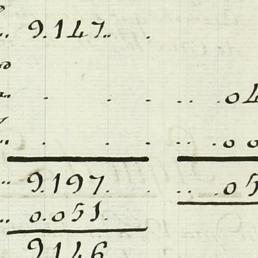 9.147..
.. .04
.. .00
9.197. .. .05
0.051.
9146